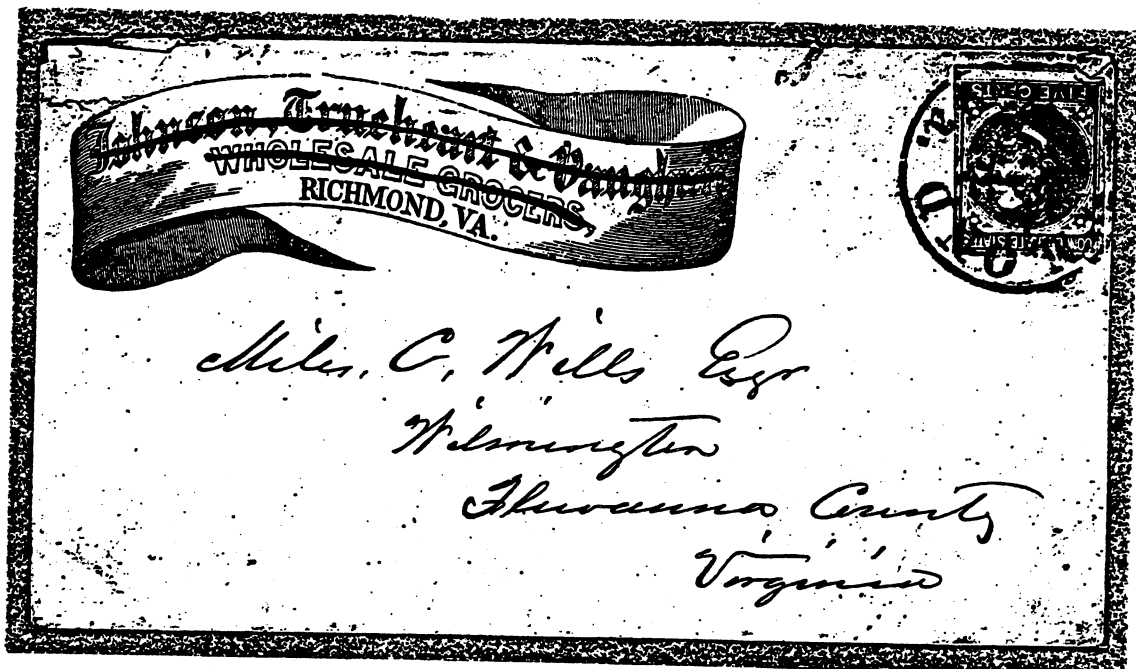 Johnson, Trueheart & Vaughan
WHOLESALE GROCERS,
RICHMOND, VA.
FIVE CENTS
Miles. C. Wills Esqr
Wilmington
Fluvanna County
Virginia